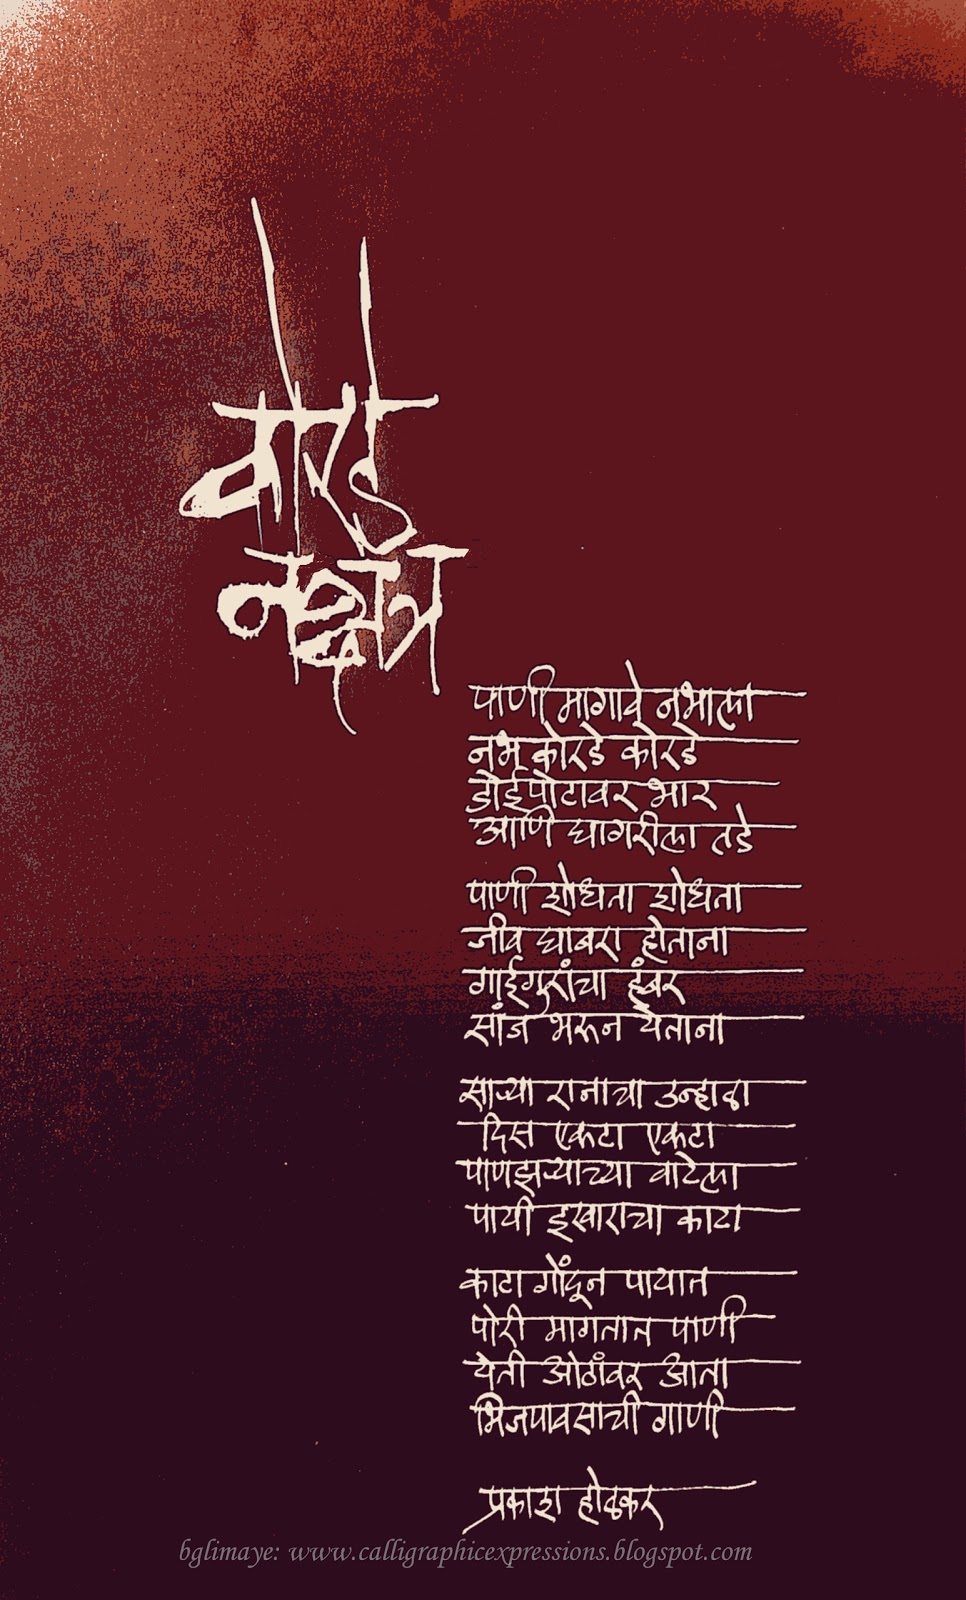 कोरडे
नक्षत्र
पाणी मागावे नभाला
नभ कोरडे कोरडे
डोईपोटावर भार
आणि घागरीला तडे
पाणी शोधता शोधता
जीव घाबरा होताना
गाईगुरांचा हंबर
सांज भरून येताना
साऱ्या रानाचा उन्हाळा
दिस एकटा एकटा
पाणझऱ्याच्या वाटेला
पायी इखाराचा काटा
काटा गोंदून पायात
पोरी मागतात पाणी
येती ओठांवर आता
भिजपावसाची गाणी
प्रकाश होळकर
bglimaye: www.calligraphicexpressions.blogspot.com